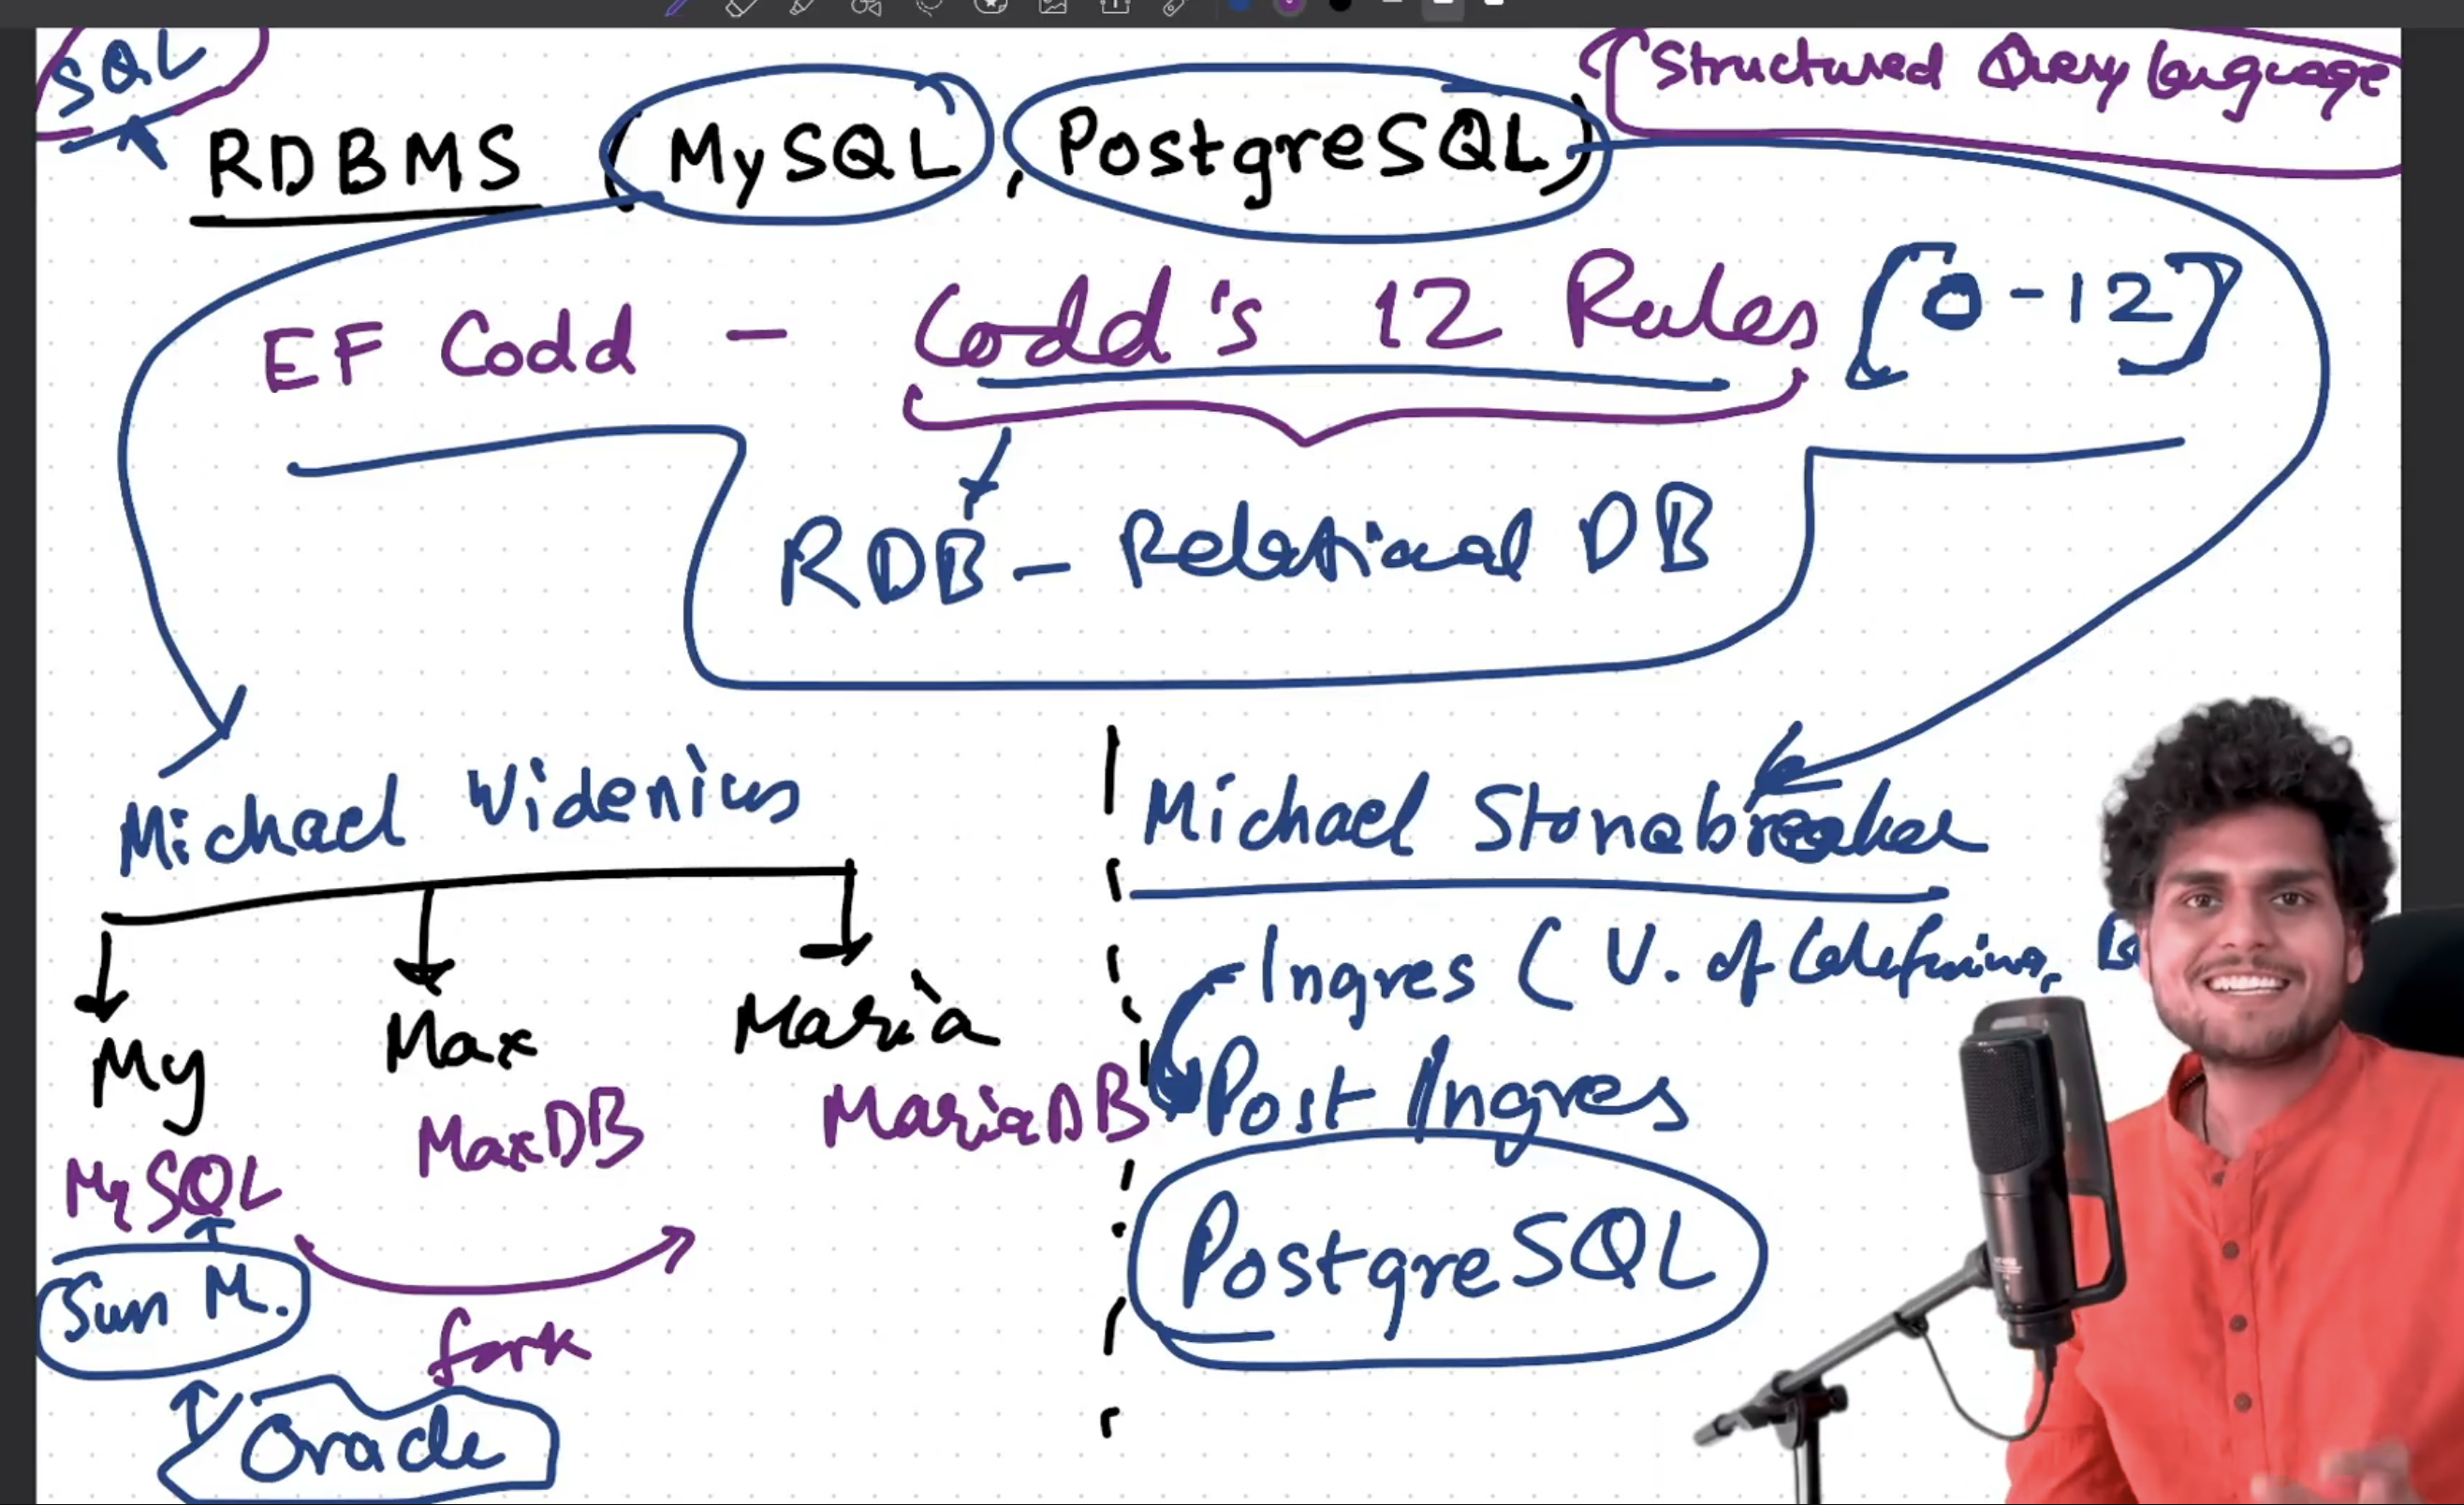 SQL
Structured Query Language
RDBMS (MySQL, PostgreSQL)
EF Codd - Codd's 12 Rules [0-12]
RDB - Relational DB
Michael Widenius
My Max Maria
MySQL MaxDB MariaDB
Sun M.
fork
Oracle
Michael Stonebreaker
Ingres ( U. of
Post Ingres
PostgreSQL